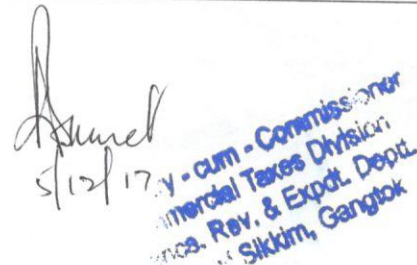 5/12/17
y - cum - Commissioner
mmercial Taxes Division
nce, Rev. & Expdt. Deptt.
Sikkim, Gangtok